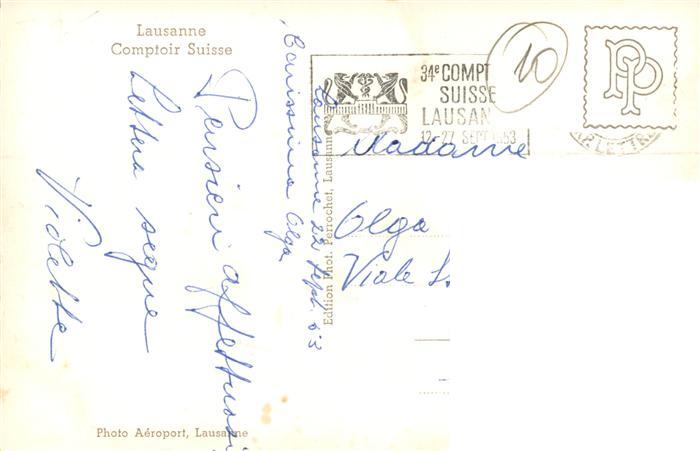 Lausanne
Comptoir Suisse
34e COMPT
SUISSE
LAUSAN
12-27 SEPT 1953
10
PP
Lausanne 22 Sept. 53
Carissima Olga
Pensieri affettuosi
Lettera segue
Violette
Madame
Olga
Viale S.
Edition Phot. Perrochet, Lausanne
Photo Aéroport, Lausanne